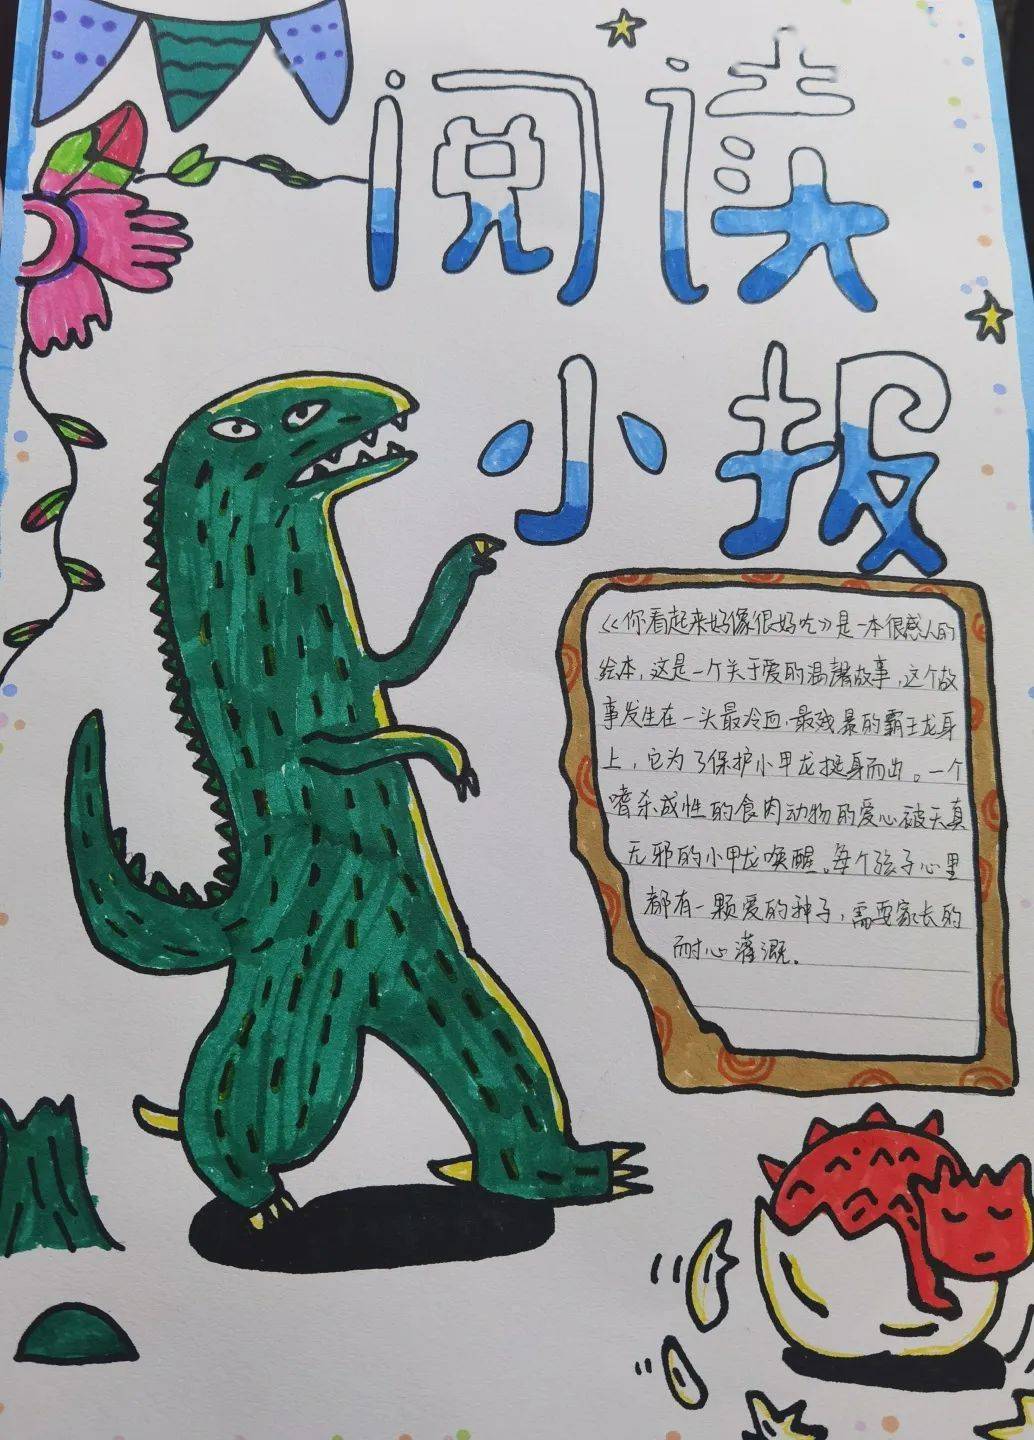 阅读
小报
《你看起来好像很好吃》是一本很感人的
绘本，这是一个关于爱的温馨故事，这个故
事发生在一头最冷血、最残暴的霸王龙身
上，它为了保护小甲龙挺身而出。一个
嗜杀成性的食肉动物的爱心被天真
无邪的小甲龙唤醒。每个孩子心里
都有一颗爱的种子，需要家长的
耐心灌溉。